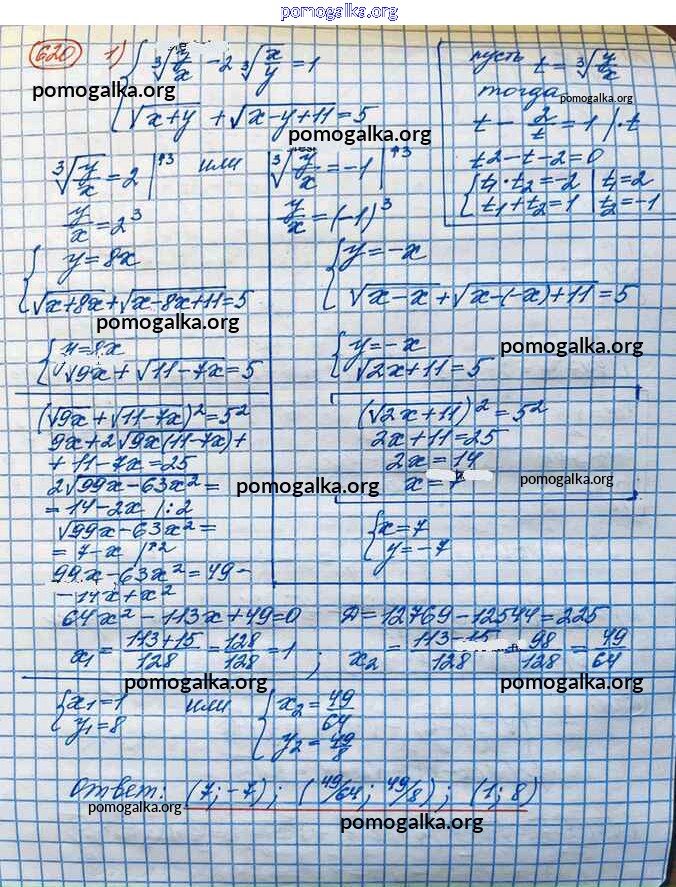 pomogalka.org
620 1) { ∛(y/x) - 2 ∛(x/y) = 1
pomogalka.org
√(x+y) + √(x-y+11) = 5
pomogalka.org
пусть t = ∛(y/x)
тогда pomogalka.org
t - 2/t = 1 | · t
t2 - t - 2 = 0
{ t₁ · t₂ = -2 | t₁ = 2
t₁ + t₂ = 1 | t₂ = -1
∛(y/x) = 2 |↑3 или ∛(y/x) = -1 |↑3
y/x = 2³
y/x = (-1)³
{ y = 8x
√(x+8x) + √(x-8x+11) = 5
pomogalka.org
{ y = 8x
√9x + √(11-7x) = 5
{ y = -x
√(x-x) + √(x-(-x)+11) = 5
{ y = -x
pomogalka.org
√(2x+11) = 5
(√9x + √(11-7x))² = 5²
9x + 2√(9x(11-7x)) +
+ 11 - 7x = 25
2√(99x-63x²) =
= 14 - 2x | : 2
√(99x-63x²) =
= 7 - x |↑2
99x - 63x² = 49 -
- 14x + x²
(√(2x+11))² = 5²
2x + 11 = 25
2x = 14
x = 7
pomogalka.org
pomogalka.org
{ x = 7
y = -7
64x² - 113x + 49 = 0 Д = 12769 - 12544 = 225
x₁ = (113+15)/128 = 128/128 = 1 ; x₂ = (113-15)/128 = 98/128 = 49/64
pomogalka.org pomogalka.org
{ x₁ = 1
y₁ = 8
или
{ x₂ = 49/64
y₂ = 49/8
Ответ: (7; -7); (49/64; 49/8); (1; 8)
pomogalka.org
pomogalka.org